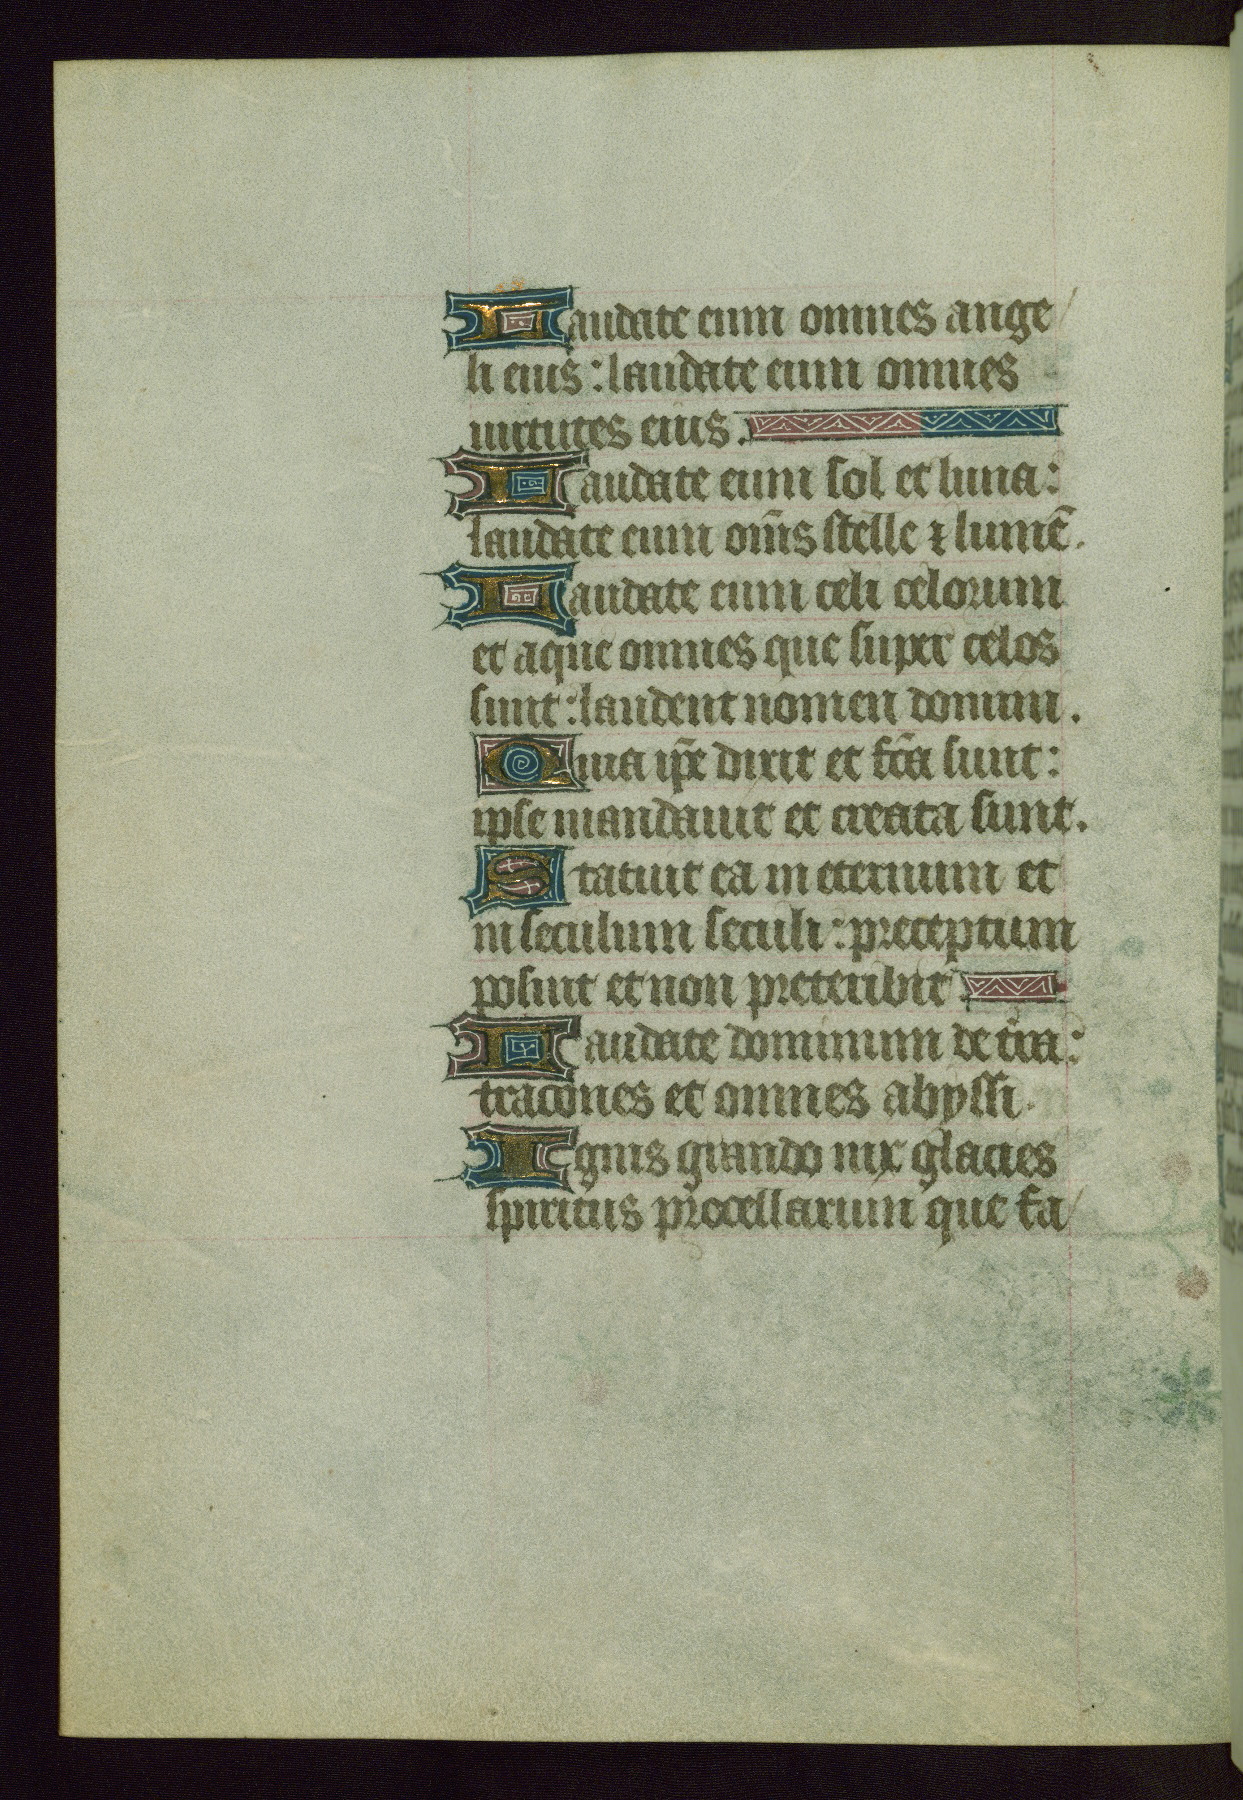 Laudate eum omnes ange/
li eius: laudate eum omnes
uirtutes eius.
Laudate eum sol et luna:
laudate eum om̄s stelle ⁊ lumē.
Laudate eum celi celorum
et aque omnes que super celos
sunt: laudent nomen domini.
Quia ip̄e dixit et fc̄a sunt:
ipse mandauit et creata sunt.
Statuit ea in eternum et
in seculum seculi: preceptum
posuit et non preteribit
Laudate dominum de t̄ra:
tracones et omnes abyssi.
Ignis grando nix glacies
spiritus procellarum que fa/